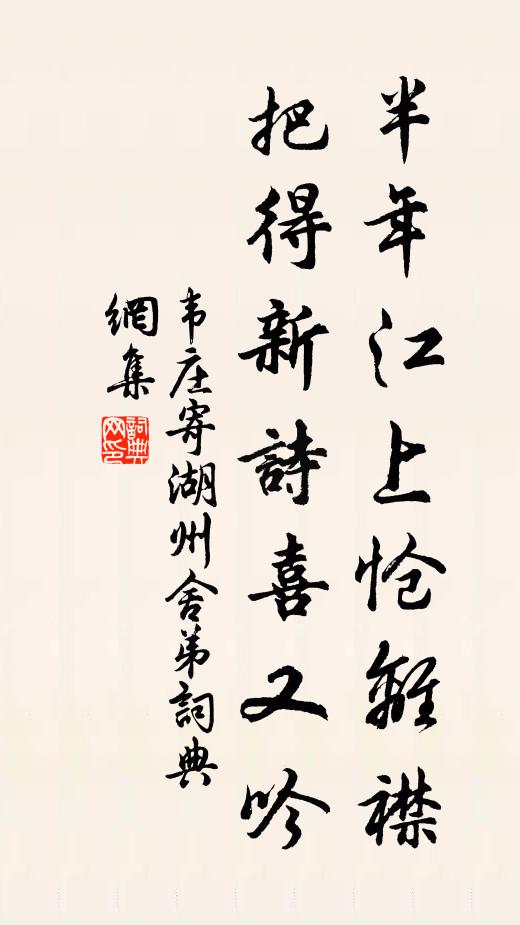 半年江上怆離襟
把得新詩喜又吟
韦庄寄湖州舍弟詞典
網集
詞典
网印